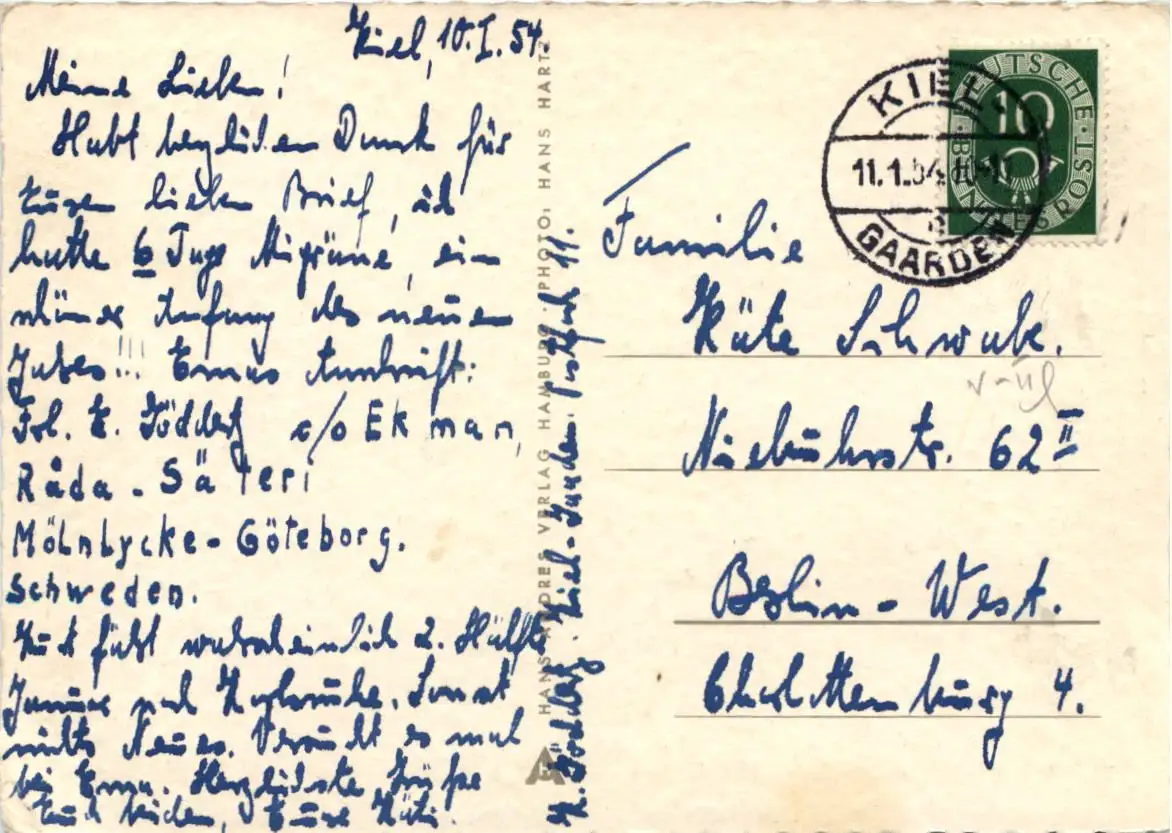 Kiel, 10.I.54.
Meine Lieben!
Habt herzlichen Dank für
Euren lieben Brief, ich
hatte 6 Tage Migräne, ein
schöner Anfang des neuen
Jahres!!! Ernas Anschrift:
Frl. E. Föddery c/o Ekman,
Råda-Säteri
Mölnlycke-Göteborg.
Schweden.
Kurt fährt wahrscheinlich 2. Hälfte
Januar nach Karlsruhe. Sonst
nichts Neues. Versucht es mal
bei Erna. Herzlichste Grüße
Euch beiden, Eure Käti.
HANS ANDRES VERLAG HAMBURG · PHOTO: HANS HARTZ
Kiel-Gaarden. Postfach 11.
KIEL
11.1.54.10-11
GAARDEN
DEUTSCHE BUNDESPOST
10
Familie
Käte Schwabe.
Niebuhrstr. 62 II
Berlin-West.
Charlottenburg 4.